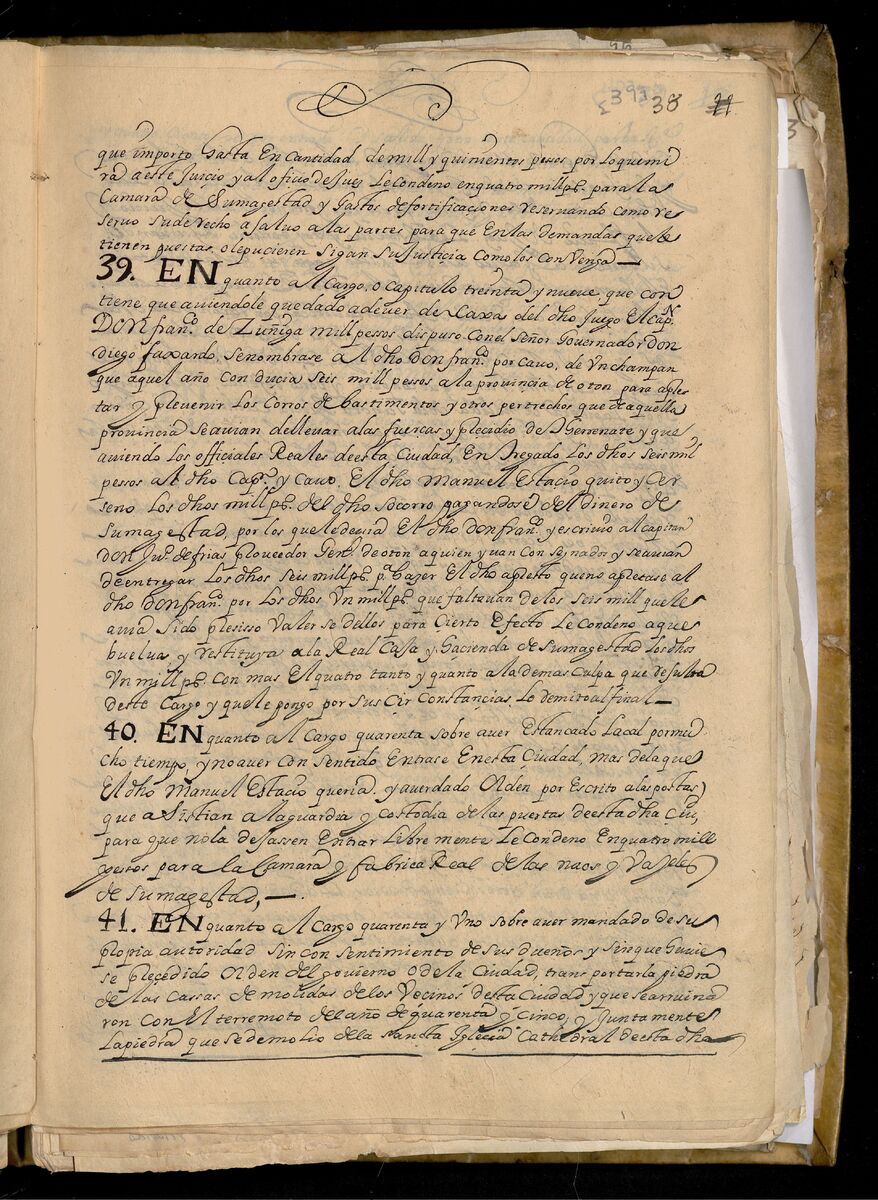 38 11
que importo Hasta En Cantidad de mill y quinientos pesos por lo que mi
ra a este Juicio y al ofiçio de Juez Le Condeno en quatro mill ps. para la
Camara de Su magestad y Gastos de fortificaciones reservando como re
servo su derecho a salvo a las partes para que En las demandas que le
tienen puestas, o le pucieren sigan su Justicia como los convenga —
39. EN quanto al Cargo, o capitulo treinta y nueve, que con
tiene que aviendole quedado a dever de Caxas del dho Juego El capn.
DON franco. de Zuñiga mill pessos dispuso con el Señor Governador Don
diego faxardo, se nombrase al dho don franco. por cavo, de Un champan
que aquel año conducia seis mill pessos a la provincia de oton para apres
tar y prevenir Los Corros de bastimentos y otros pertrechos que de aquella
provincia se avian de llevar a las fuerças y precidio de therrenate y que
aviendo Los officiales Reales de esta Ciudad, Entregado Los dhos seis mil
pessos al dho Capn. y Cavo, El dho Manuel Estacio quito y Cer
seno Los dhos mill ps. del dho Socorro pagandose del dinero de
su magestad, por los que le devia El dho don franco. y escrivio al capitan
DON Jun. de frias proveedor Genl. de oton a quien yvan Consignados y se avian
de entregar Los dhos seis mill ps. pa. hazer El dho apresto que no apretase al
dho don franco. por Los dhos Un mill ps. que faltavan de los seis mill que le
avia sido presisso valerse dellos para Çierto Efecto Le Condeno a que
buelva, y restituya a la Real Casa y Haçienda de su magestad Los dhos
Un mill ps. con mas El quatro tanto y quanto a la demas culpa que resulta
deste Cargo y que le pongo por sus Circonstancias, Lo remito al final —
40. EN quanto al Cargo quarenta sobre aver Estancado La cal por mu
cho tiempo, y no aver Consentido Entrase En esta Ciudad, mas de la que
El dho Manuel Estacio queria, y aver dado Orden por Escrito a las postas
que asistian a la guardia y custodia de las puertas de esta dha Ciud,
para que no la dejassen Entrar Libremente Le Condeno En quatro mill
pessos para la Camara y fabrica Real de las naos y Vajeles
de su magestad, —
41. EN quanto al Cargo quarenta y Uno sobre aver mandado de su
propia autoridad sin consentimiento de sus dueños y sin que huvie
se preçedido Orden del govierno o de la Ciudad, transportar la piedra
de las Cassas demolidas de los Vecinos desta Ciudad y que se arruina
ron con El terremoto del año de quarenta y cinco, y Juntamente
La piedra que se demolio de la sancta Iglecia Cathedral de esta dha